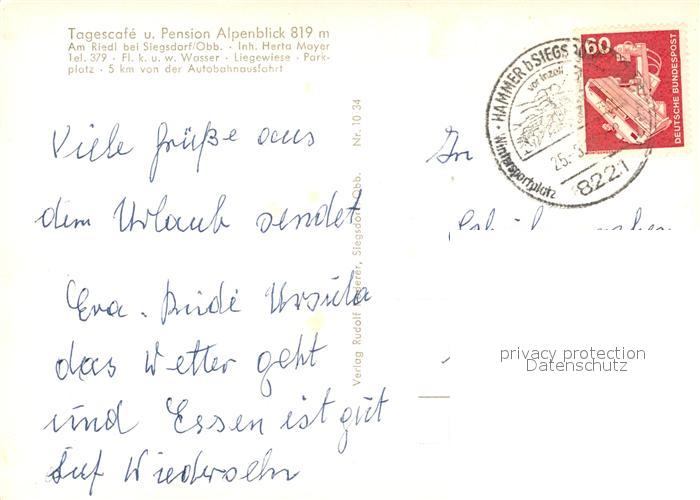 Tagescafé u. Pension Alpenblick 819 m
Am Riedl bei Siegsdorf/Obb. · Inh. Herta Mayer
Tel. 379 · Fl. k. u. w. Wasser · Liegewiese · Park-
platz · 5 km von der Autobahnausfahrt
Viele Grüße aus
dem Urlaub sendet
Eva. Ursula
das Wetter geht
und Essen ist gut
Auf Wiedersehn
Nr. 10 34
Verlag Rudolf Siegsdorf Obb.
HAMMER b SIEGS
vor Inzell
25.-3.
8221
Wintersportplatz
60
DEUTSCHE BUNDESPOST
privacy protection
Datenschutz